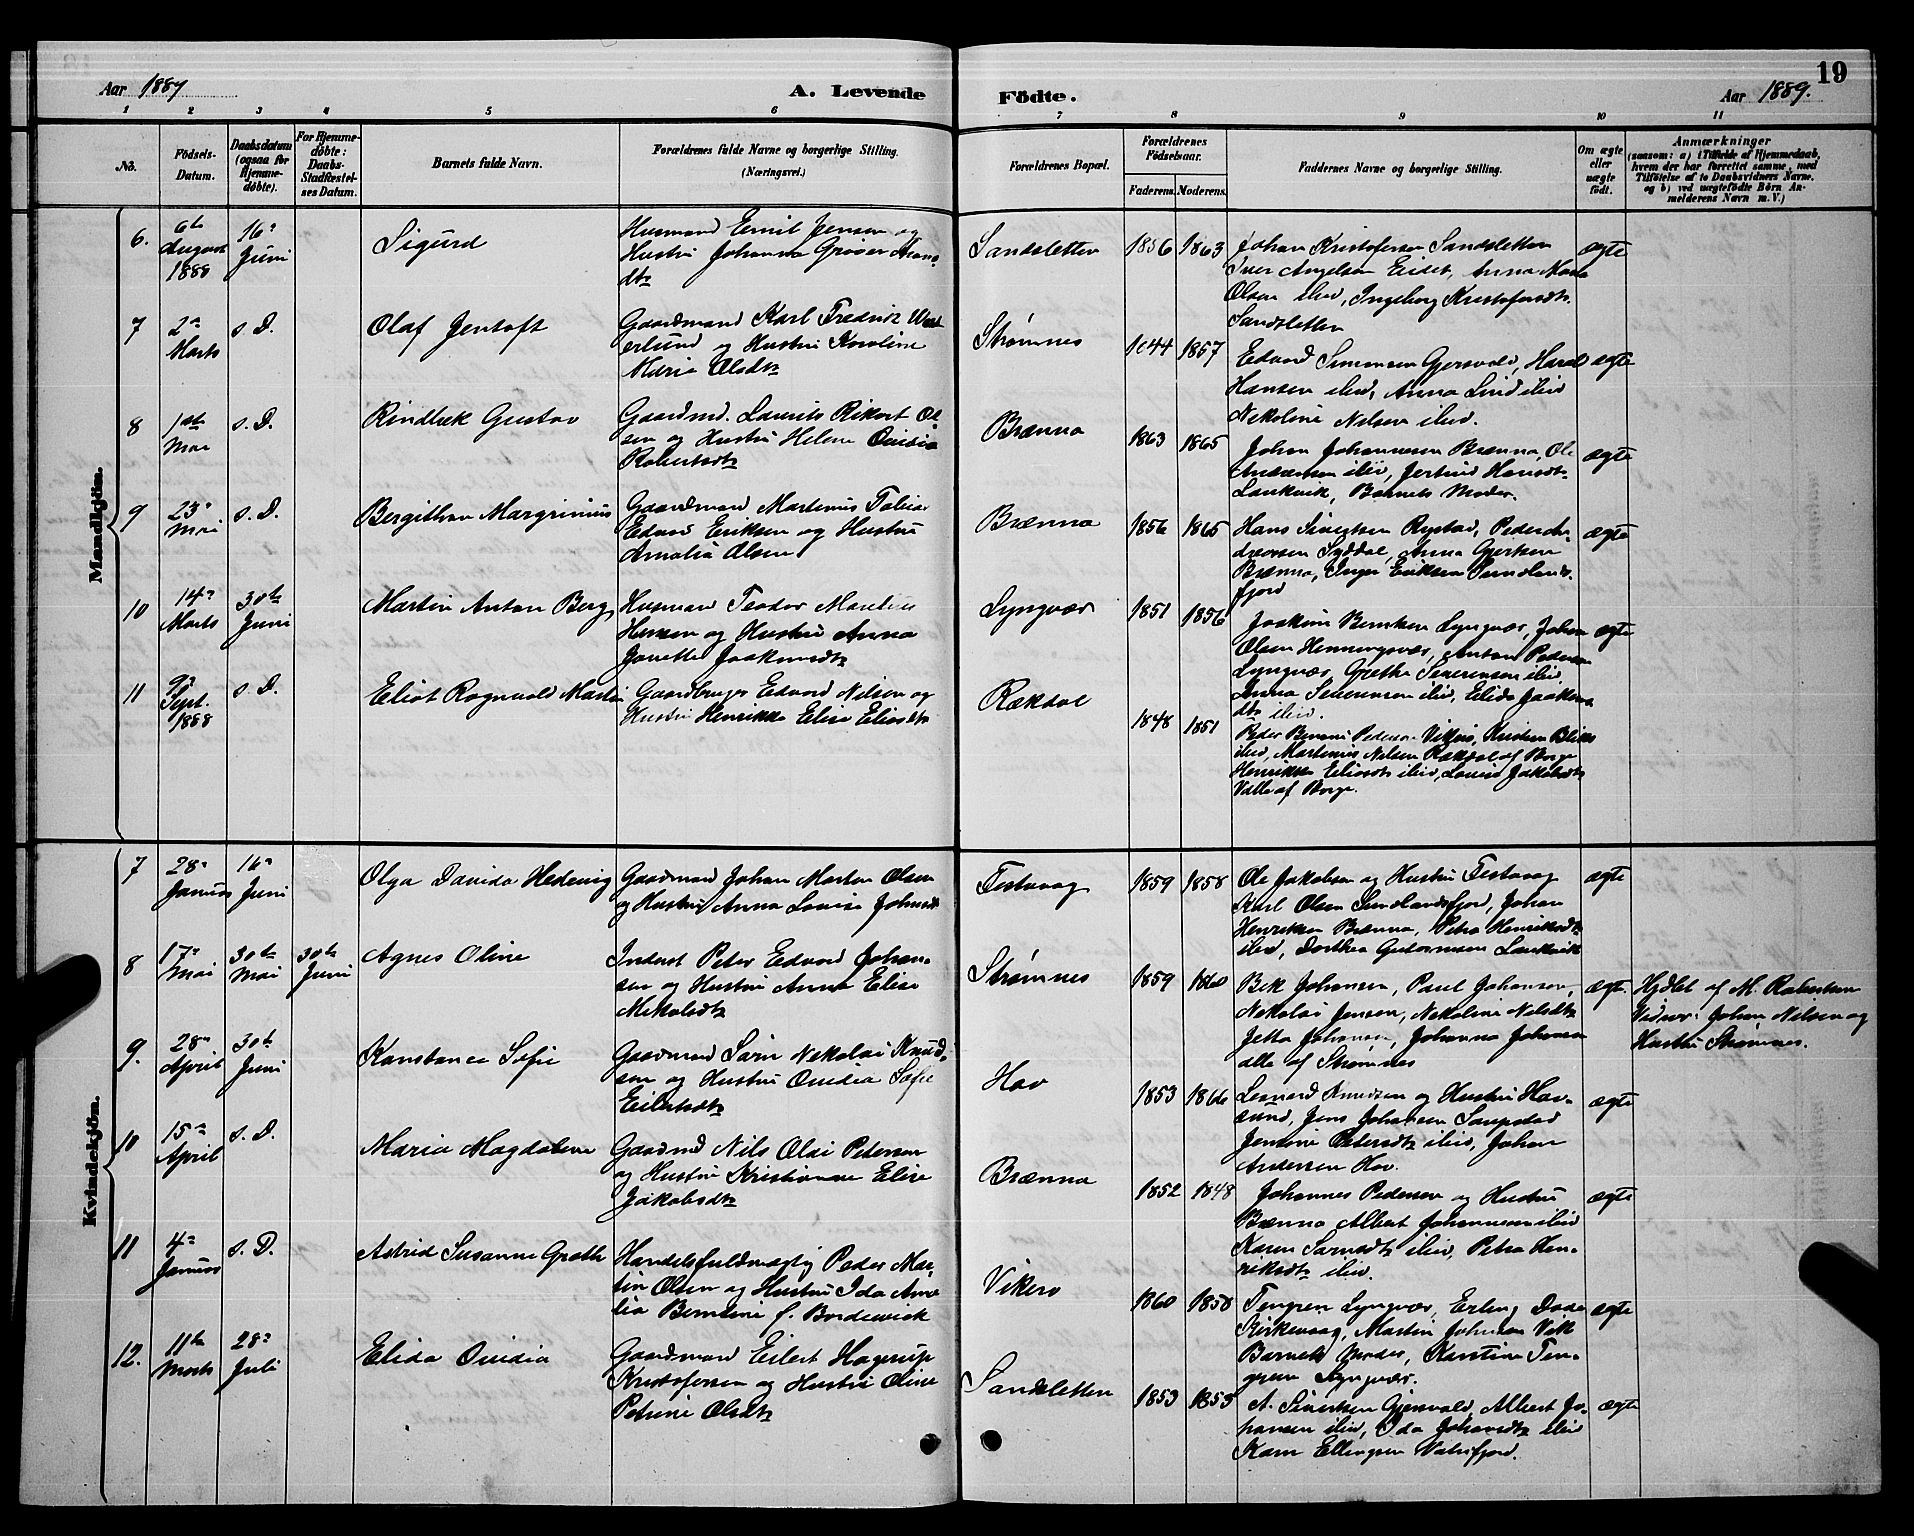 Aar 1889
A. Levende
Födte.
Aar 1889.
19
1 2 3 4 5 6 7 8 9 10 11
No. Födsels-Datum. Daabsdatum (ogsaa for Hjemme-döbte). For Hjemme-döbte: Daabs-Stadfæstel-ses Datum. Barnets fulde Navn. Forældrenes fulde Navne og borgerlige Stilling. (Næringsvei.) Forældrenes Bopæl. Forældrenes Födselsaar. Faderens. Moderens. Faddernes Navne og borgerlige Stilling. Om ægte eller uægte födt. Anmærkninger (saasom: a) i Tilfælde af Hjemmedaab, hvem der har forrettet samme, med Tilföielse af to Daabsvidners Navne, og b) ved uægtefödte Börn An-melderens Navn m. V.)
Mandkjön.
6. 6te August 1888 16de Juni Sigurd
Husmand Emil Jensen og
Hustru Johanna
dtr
Sandsletten 1856 1863
Johan Kristofersen Sandsletten
Iver Angelsen Eidet, Anna Maria
Olsen ibid, Ingeborg Kristofersdtr
Sandsletten
ægte
7 2den Marts s. D. Olaf Jentoft
Gaardmand Karl Fredrik West
erlund og Hustru Karoline
Maria Olsdtr
Strømnes 1844 1857
Edvard Simonsen Gjersvold, Haral
Hansen ibid, Anna Lind ibid
Nekoline Nilsen ibid.
ægte
8 1ste Mai s. D. Rindbæk Gustav
Gaardmd. Laurits Rikart Ol
sen og Hustru Helene Ovidia
Robertsdtr
Brænna 1863 1865
Johan Johannesen Brænna, Ole
Andersen ibid, Jertrud Hansdtr
Laukvik, Barnets Moder.
ægte
9 23de Mai s. D. Bergithon Margrinius
Gaardmand Martinus Tobias
Edvard Eriksen og Hustru
Amalia Olsen
Brænna 1856 1865
Hans Sivertsen Rystad, Peder An-
dreasen Syddal, Anna Gjertsen
Brænna, Inger Eriksen Sundlands
fjord
ægte
10 14de Marts 30te Juni Martin Anton Berg
Husmand Teodor Martin
Hansen og Hustru Anna
Janette Joakimsdtr
Lyngvær 1851 1856
Joakim Berntsen Lyngvær, Johan
Olsen Henningsvær, Anton Pedersen
Lyngvær, Grethe Severinsen ibid
Anna Severinsen ibid, Elida Joakims
dtr ibid.
ægte
11 9de Sept. 1888 s. D. Eliot Ragnvald Martin
Gaardbruger Edvard Nilsen og
Hustru Henrikke Elise Eliasdtr
Rækdal 1848 1851
Peder Benoni Pedersen Vikjus, Kristian Bliks
ibid, Martinus Nilsen Rækdal af Borge
Henrikke Eliasdtr ibid, Lovise Jakobsdtr
Valle af Borge.
Kvindekjön.
7 28de Januar 16de Juni Olga Davida Hedevig
Gaardmand Johan Morten Olsen
og Hustru Anna Lovise Johnsdtr
Festvaag 1859 1858
Ole Jakobsen og Hustru Festvaag
Karl Olsen Sundlandsfjord, Johan
Henriksen Brænna, Petra Henriksdtr
ibid, Dorthea Guttormsen Laukvik
ægte
8 17de Mai 30te Mai 30te Juni Agnes Oline
Inderst Peter Edvard Johan-
sen og Hustru Anna Elise
Nikolsdtr
Strømnes 1859 1860
Bek Johansen, Paul Johansen,
Nekolai Jensen, Nekoline Nilsdtr
Jetta Johansen, Johanna Johansen
alle af Strømnes
ægte.
Hjdbt af M. Robertsen
Vidner: Johan Nilsen og
Hustru Strømnes.
9. 28de April 30te Juni Konstance Sofie
Gaardmand Sørn Nekolai Knud-
sen og Hustru Ovidia Sofie
Eilertsdtr
Hov 1853 1866
Leonard Knudsen og Hustru Hav-
sund, Jens Johansen Saupstad
Jensine Pedersdtr ibid, Johan
Andersen Hov.
ægte
10 15de April s. D. Maria Magdalene
Gaardmd Nils Olai Petersen
og Hustru Kristianne Elise
Jakobsdtr
Brænna 1852 1848
Johannes Pedersen og Hustru
Brænna Albert Johannesen ibid
Karen Sørnsdtr ibid, Petra Hen-
riksdtr ibid.
ægte
11 4de Januar s. D. Astrid Susanne Grethe
Handelsfuldmægtig Peder Mar-
tin Olsen og Hustru Ida Ama
lia Berntine f. Bordewick
Vikero 1860 1858
Tengren Lyngvær, Erling Dode
Kirkevaag, Martin Johnsen Vik
Barnets Moder, Karstine Ten-
gren Lyngvær.
ægte
12. 11te Marts 28de Juli Elida Ovidia
Gaardmand Eilert Hagerup
Kristofersen og Hustru Oline
Petrine Olsdtr
Sandsletten 1853 1855
A. Sivertsen Gjersvold, Albert Jo-
hansen ibid, Ida Johansdtr ibid
Karn Ellingsen Vatnfjord.
ægte